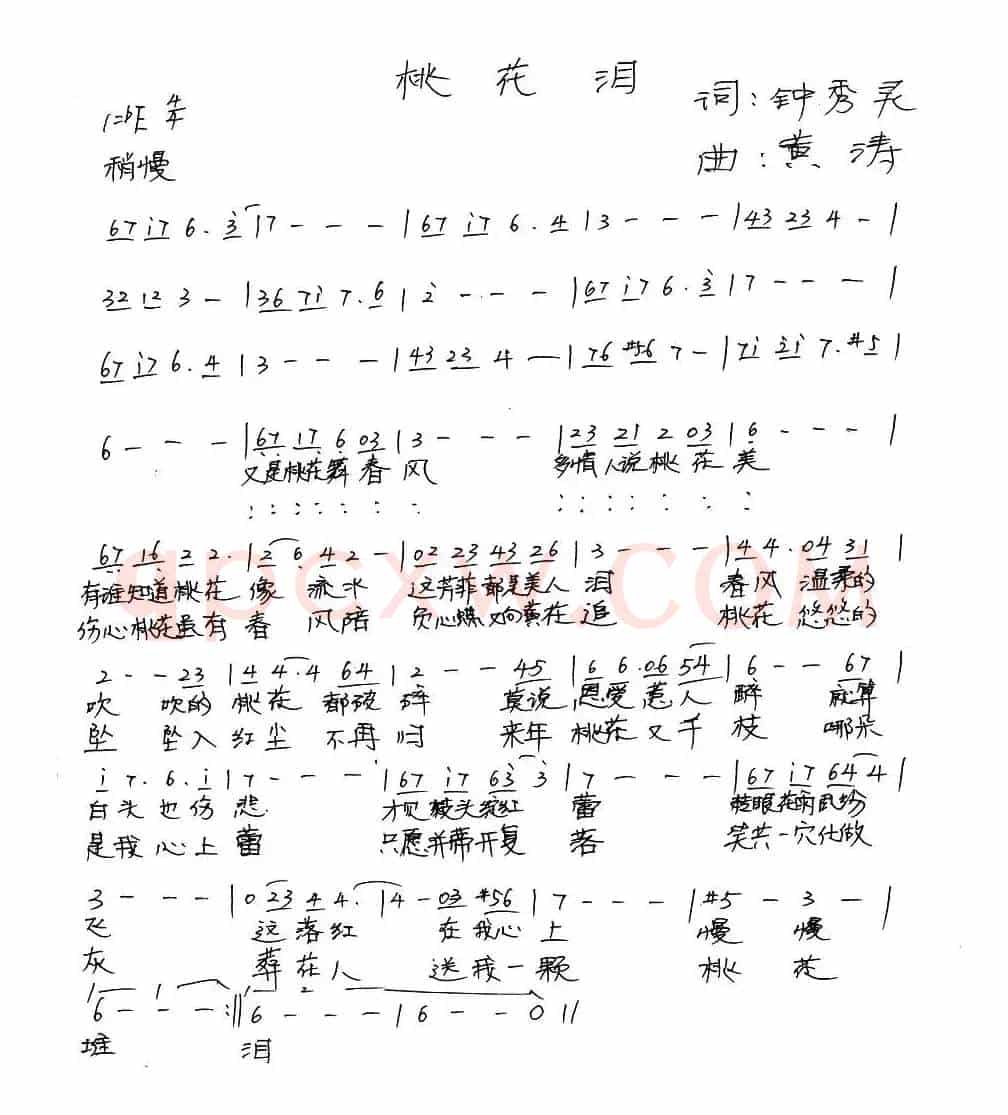 桃花泪
词:钟秀灵
1=bE 4/4
曲:黄涛
稍慢
67 i7 6. 3 | 7 - - - | 67 i7 6. 4 | 3 - - - | 43 23 4 - |
32 12 3 - | 36 7i 7. 6 | 2 - - - | 67 i7 6. 3 | 7 - - - |
67 i7 6. 4 | 3 - - - | 43 23 4 — | 76 #56 7 - | 7i 2i 7. #5 |
6 - - - | 67 17 6 03 | 3 - - - | 23 21 2 03 | 6 - - - |
又是桃花舞春风 多情人说桃花美
67 16 2 2. | 2 6 4 2 - | 02 23 43 26 | 3 - - - | 4 4. 04 31 |
有谁知道桃花像流水 这芳菲都是美人泪 春风温柔的
伤心桃花虽有春风陪 负心蝶又向黄花追 桃花悠悠的
qpcxw.COM
2 - - 23 | 4 4. 4 64 | 2 - - 45 | 6 6. 06 54 | 6 - - 67 |
吹 吹的桃花都破碎 莫说恩爱惹人醉 就算
坠 坠入红尘不再归 来年桃花又千枝 哪朵
i 7. 6. i | 7 - - - | 67 i7 63 3 | 7 - - - | 67 i7 64 4 |
白头也伤悲 才见枝头绽红蕾 转眼花雨风纷
是我心上蕾 只愿并蒂开复落 笑共一穴化做
3 - - - | 0 23 4 4. | 4 - 03 #56 | 7 - - - | #5 - 3 - |
飞 这落红在我心上 慢慢
灰 葬花人送我一颗 桃花
1 1 1 2
6 - - - :|| 6 - - - | 6 - - 0 ||
堆 泪